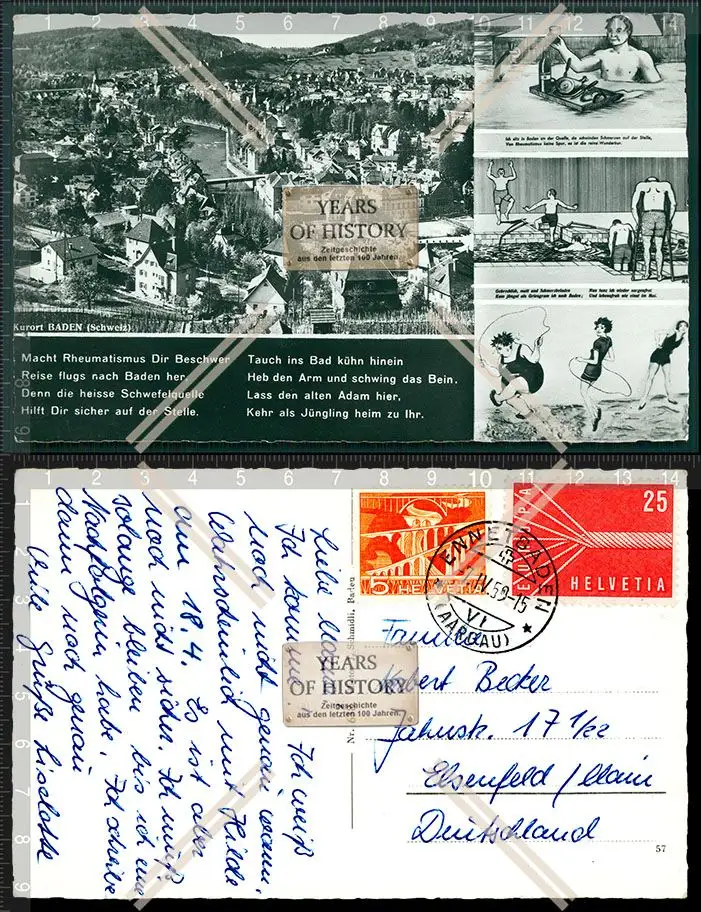 YEARS
OF HISTORY
Zeitgeschichte
aus den letzten 100 Jahren.
Kurort BADEN (Schweiz)
Macht Rheumatismus Dir Beschwer
Reise flugs nach Baden her,
Denn die heisse Schwefelquelle
Hilft Dir sicher auf der Stelle.
Tauch ins Bad kühn hinein
Heb den Arm und schwing das Bein.
Lass den alten Adam hier,
Kehr als Jüngling heim zu Ihr.
Ich sitz in Baden an der Quelle, da schwinden Schmerzen auf der Stelle,
Von Rheumatismus keine Spur, es ist die reine Wunderkur.
Gebrechlich, matt und Schmerzbeladen
Kam jüngst als Greisgram ich nach Baden;
Nun tanz ich wieder sorgenfrei
Und lebensfroh wie einst im Mai.
Liebe Mama!
Ich komme Ich weiß
noch nicht genau wann.
Wahrscheinlich mit Hilde
am 18.4. Es ist aber
noch nicht sicher. Ich muß
solange bleiben bis ich eine
Nachfolgerin habe. Ich schreibe
dann noch genau
Viele Grüße Liselotte
Schmidli, Baden
5
HELVETIA
EUROPA
25
HELVETIA
ENNETBADEN
IV.59-15
VI
(AARGAU)
Familie
Robert Becker
Jahnstr. 17 1/22
Elsenfeld / Main
Deutschland
57
YEARS
OF HISTORY
Zeitgeschichte
aus den letzten 100 Jahren.